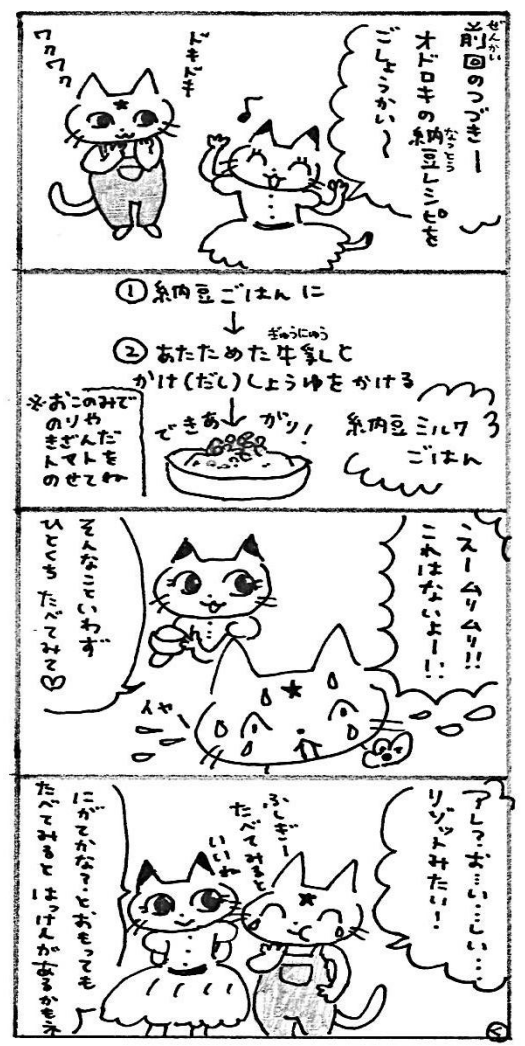 前回のつづきー
ぜんかい
オドロキの納豆レシピを
なっとう
ごしょうかい〜
ドキドキ
ワクワク
① 納豆ごはんに
↓
② あたためた牛乳と
ぎゅうにゅう
かけ(だし)しょうゆをかける
↓
できあがり!
納豆ミルク
ごはん
※おこのみで
のりや
きざんだ
トマトを
のせてね
えームリムリ!!
これはないよー!!
そんなこといわず
ひとくち たべてみて♡
イヤー
アレ?お…い…しい…
リゾットみたい!
ふしぎー
たべてみると
いいね
にがてかな?とおもっても
たべてみると はっけんがあるかもネ